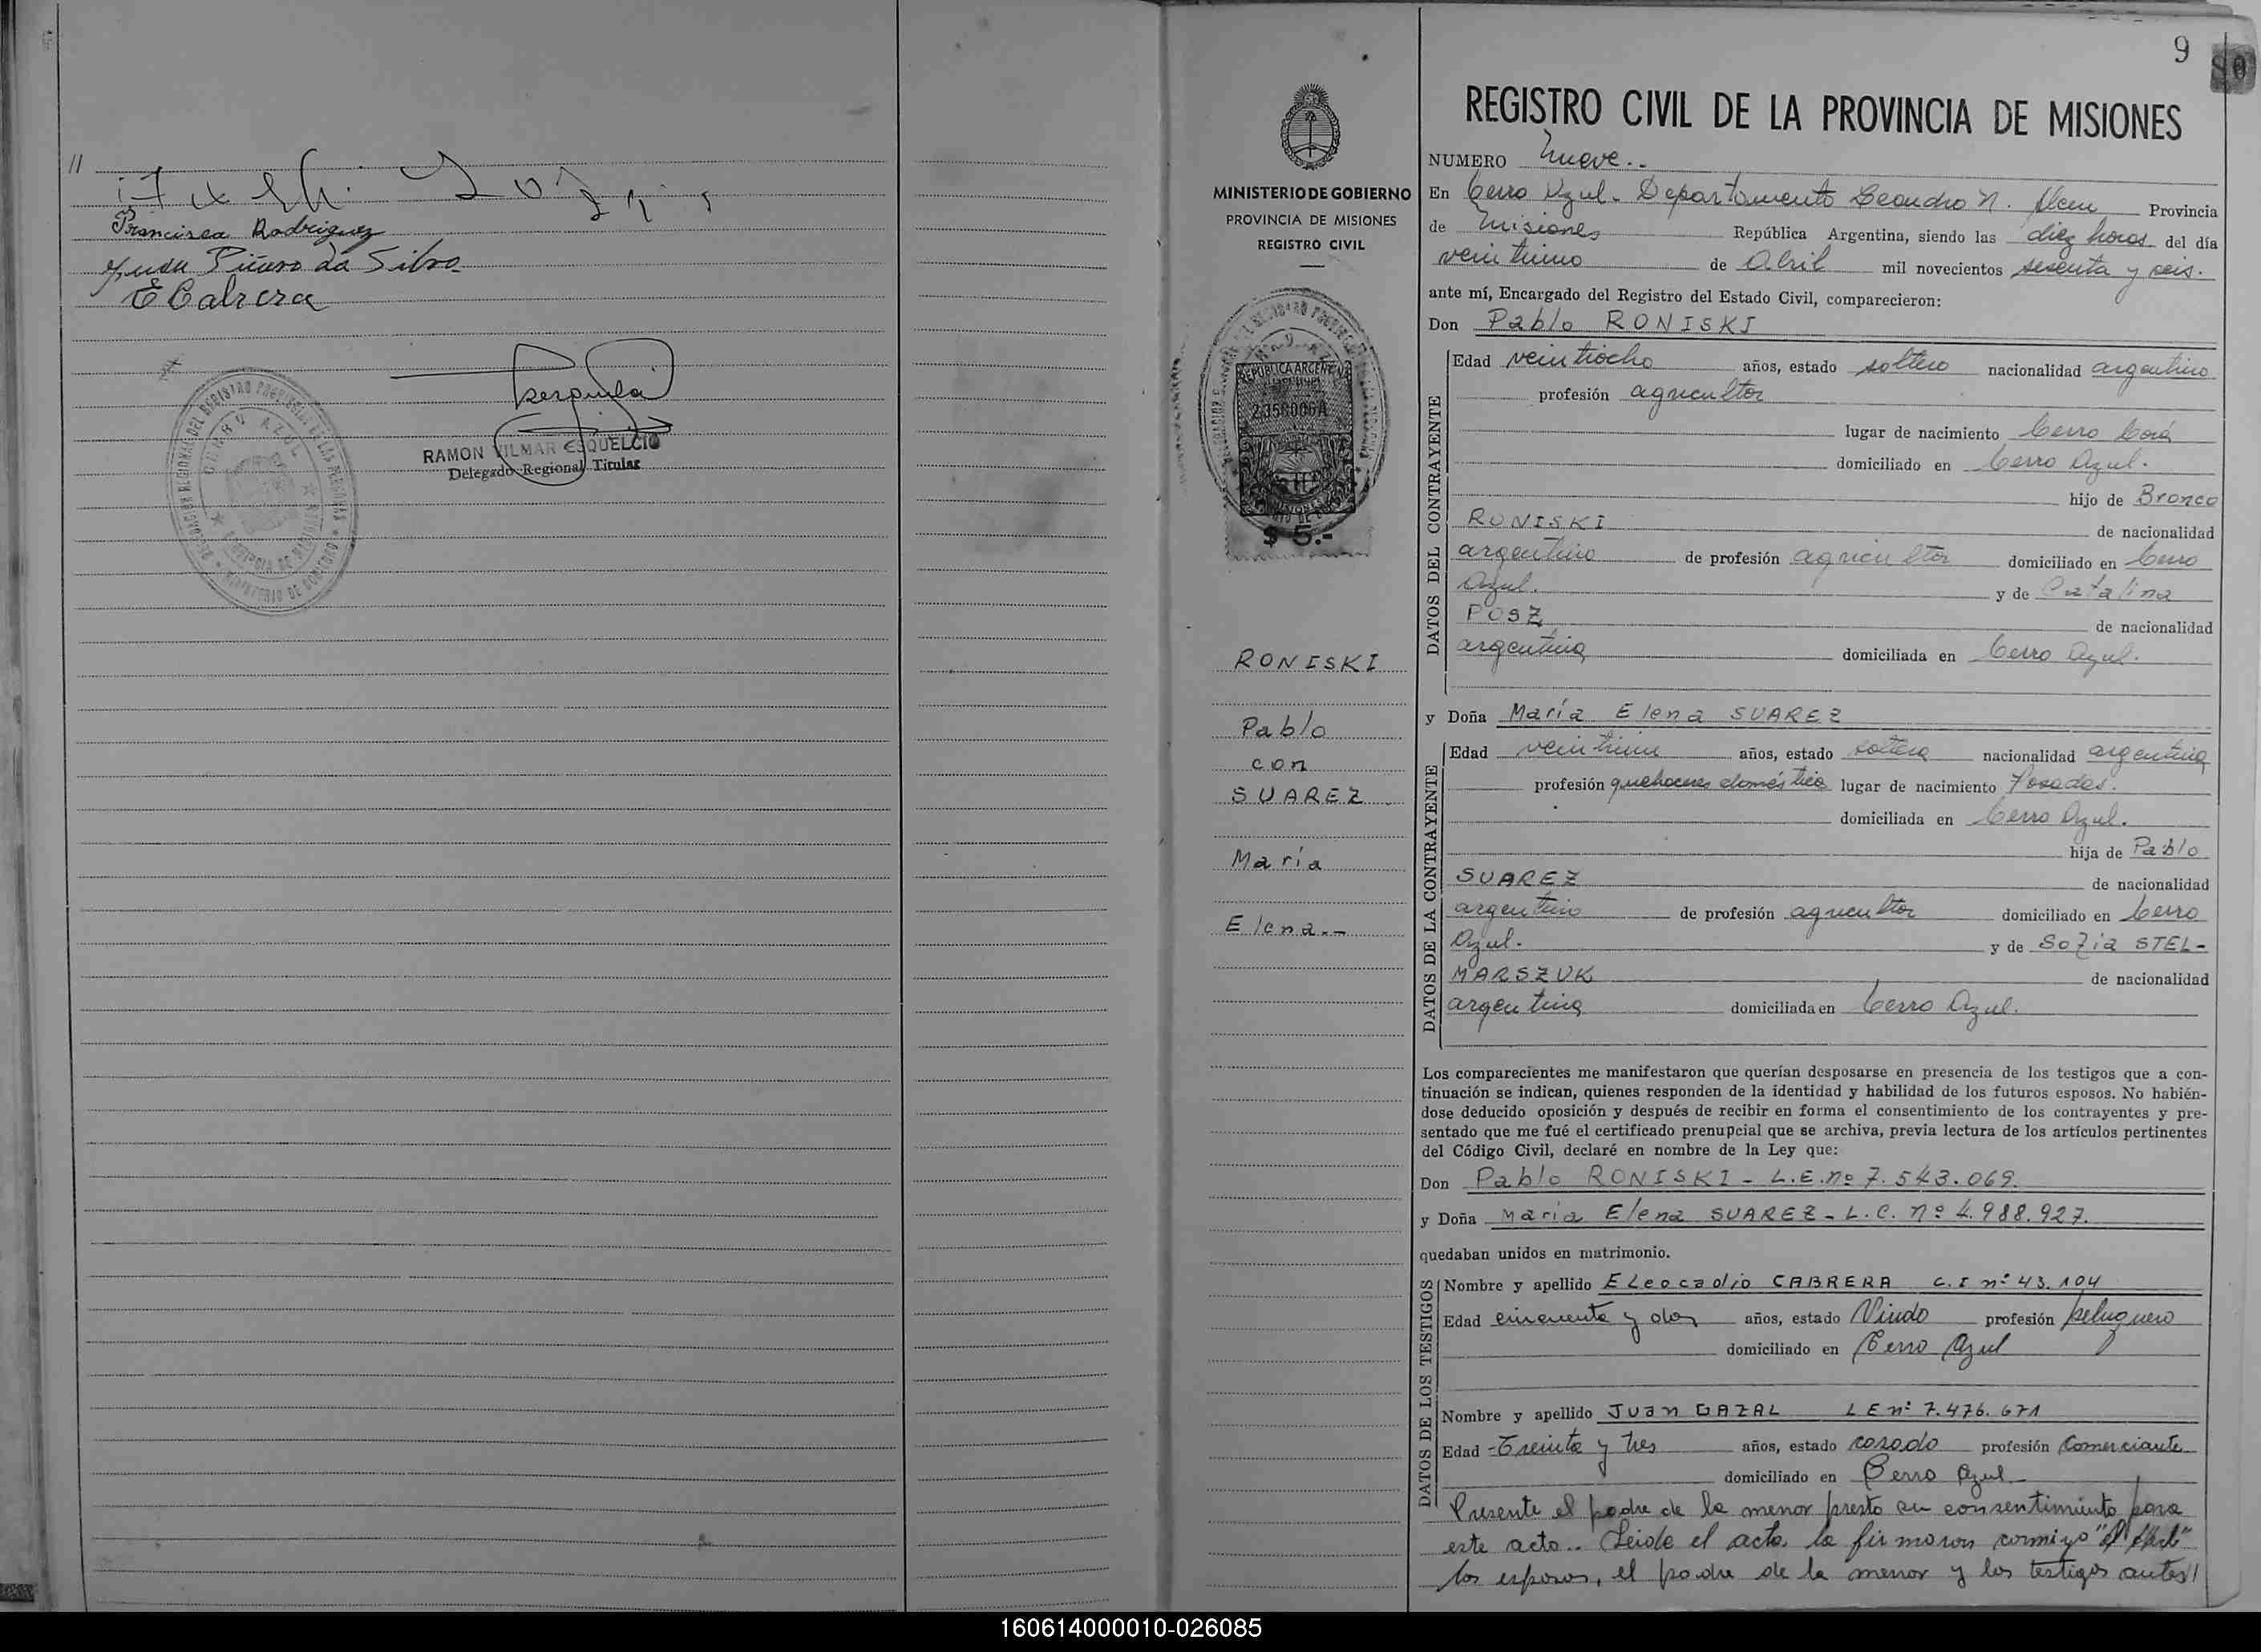 //
Francisca Rodriguez
Juan Piñero Da Silva
E Cabrera
RAMON VILMAR ESQUELCIO
Delegado Regional Titular
9
REGISTRO CIVIL DE LA PROVINCIA DE MISIONES
MINISTERIO DE GOBIERNO
PROVINCIA DE MISIONES
REGISTRO CIVIL
REPUBLICA ARGENTINA
$ 5.-
RONISKI
Pablo
con
SUAREZ
María
Elena.--
NUMERO Nueve..
En Cerro Azul. Departamento Leandro N. Alem Provincia
de Misiones República Argentina, siendo las diez horas del día
veintiuno de Abril mil novecientos sesenta y seis.
ante mí, Encargado del Registro del Estado Civil, comparecieron:
Don Pablo RONISKI
DATOS DEL CONTRAYENTE
Edad veintiocho años, estado soltero nacionalidad argentino
profesión agricultor
lugar de nacimiento Cerro Corá
domiciliado en Cerro Azul.
hijo de Bronco
RONISKI de nacionalidad
argentino de profesión agricultor domiciliado en Cerro
Azul. y de Catalina
POSZ de nacionalidad
argentina domiciliada en Cerro Azul.
y Doña María Elena SUAREZ
DATOS DE LA CONTRAYENTE
Edad veintiun años, estado soltera nacionalidad argentina
profesión quehaceres domésticos lugar de nacimiento Posadas.
domiciliada en Cerro Azul.
hija de Pablo
SUAREZ de nacionalidad
argentino de profesión agricultor domiciliado en Cerro
Azul. y de Sofia STEL-
MARSZUK de nacionalidad
argentina domiciliada en Cerro Azul.
Los comparecientes me manifestaron que querían desposarse en presencia de los testigos que a con-
tinuación se indican, quienes responden de la identidad y habilidad de los futuros esposos. No habién-
dose deducido oposición y después de recibir en forma el consentimiento de los contrayentes y pre-
sentado que me fué el certificado prenupcial que se archiva, previa lectura de los artículos pertinentes
del Código Civil, declaré en nombre de la Ley que:
Don Pablo RONISKI - L.E. nº 7.543.069.
y Doña María Elena SUAREZ - L.C. nº 4.988.927.
quedaban unidos en matrimonio.
DATOS DE LOS TESTIGOS
Nombre y apellido ELeocadio CABRERA C.I nº 43.104
Edad cincuenta y dos años, estado Viudo profesión peluquero
domiciliado en Cerro Azul
Nombre y apellido Juan GAZAL L E nº 7.476.671
Edad Treinta y tres años, estado casado profesión Comerciante
domiciliado en Cerro Azul
Presente el padre de la menor presto su consentimiento para
este acto.. Leida el acta la firmaron conmigo
los esposos, el padre de la menor y los testigos antes//
160614000010-026085